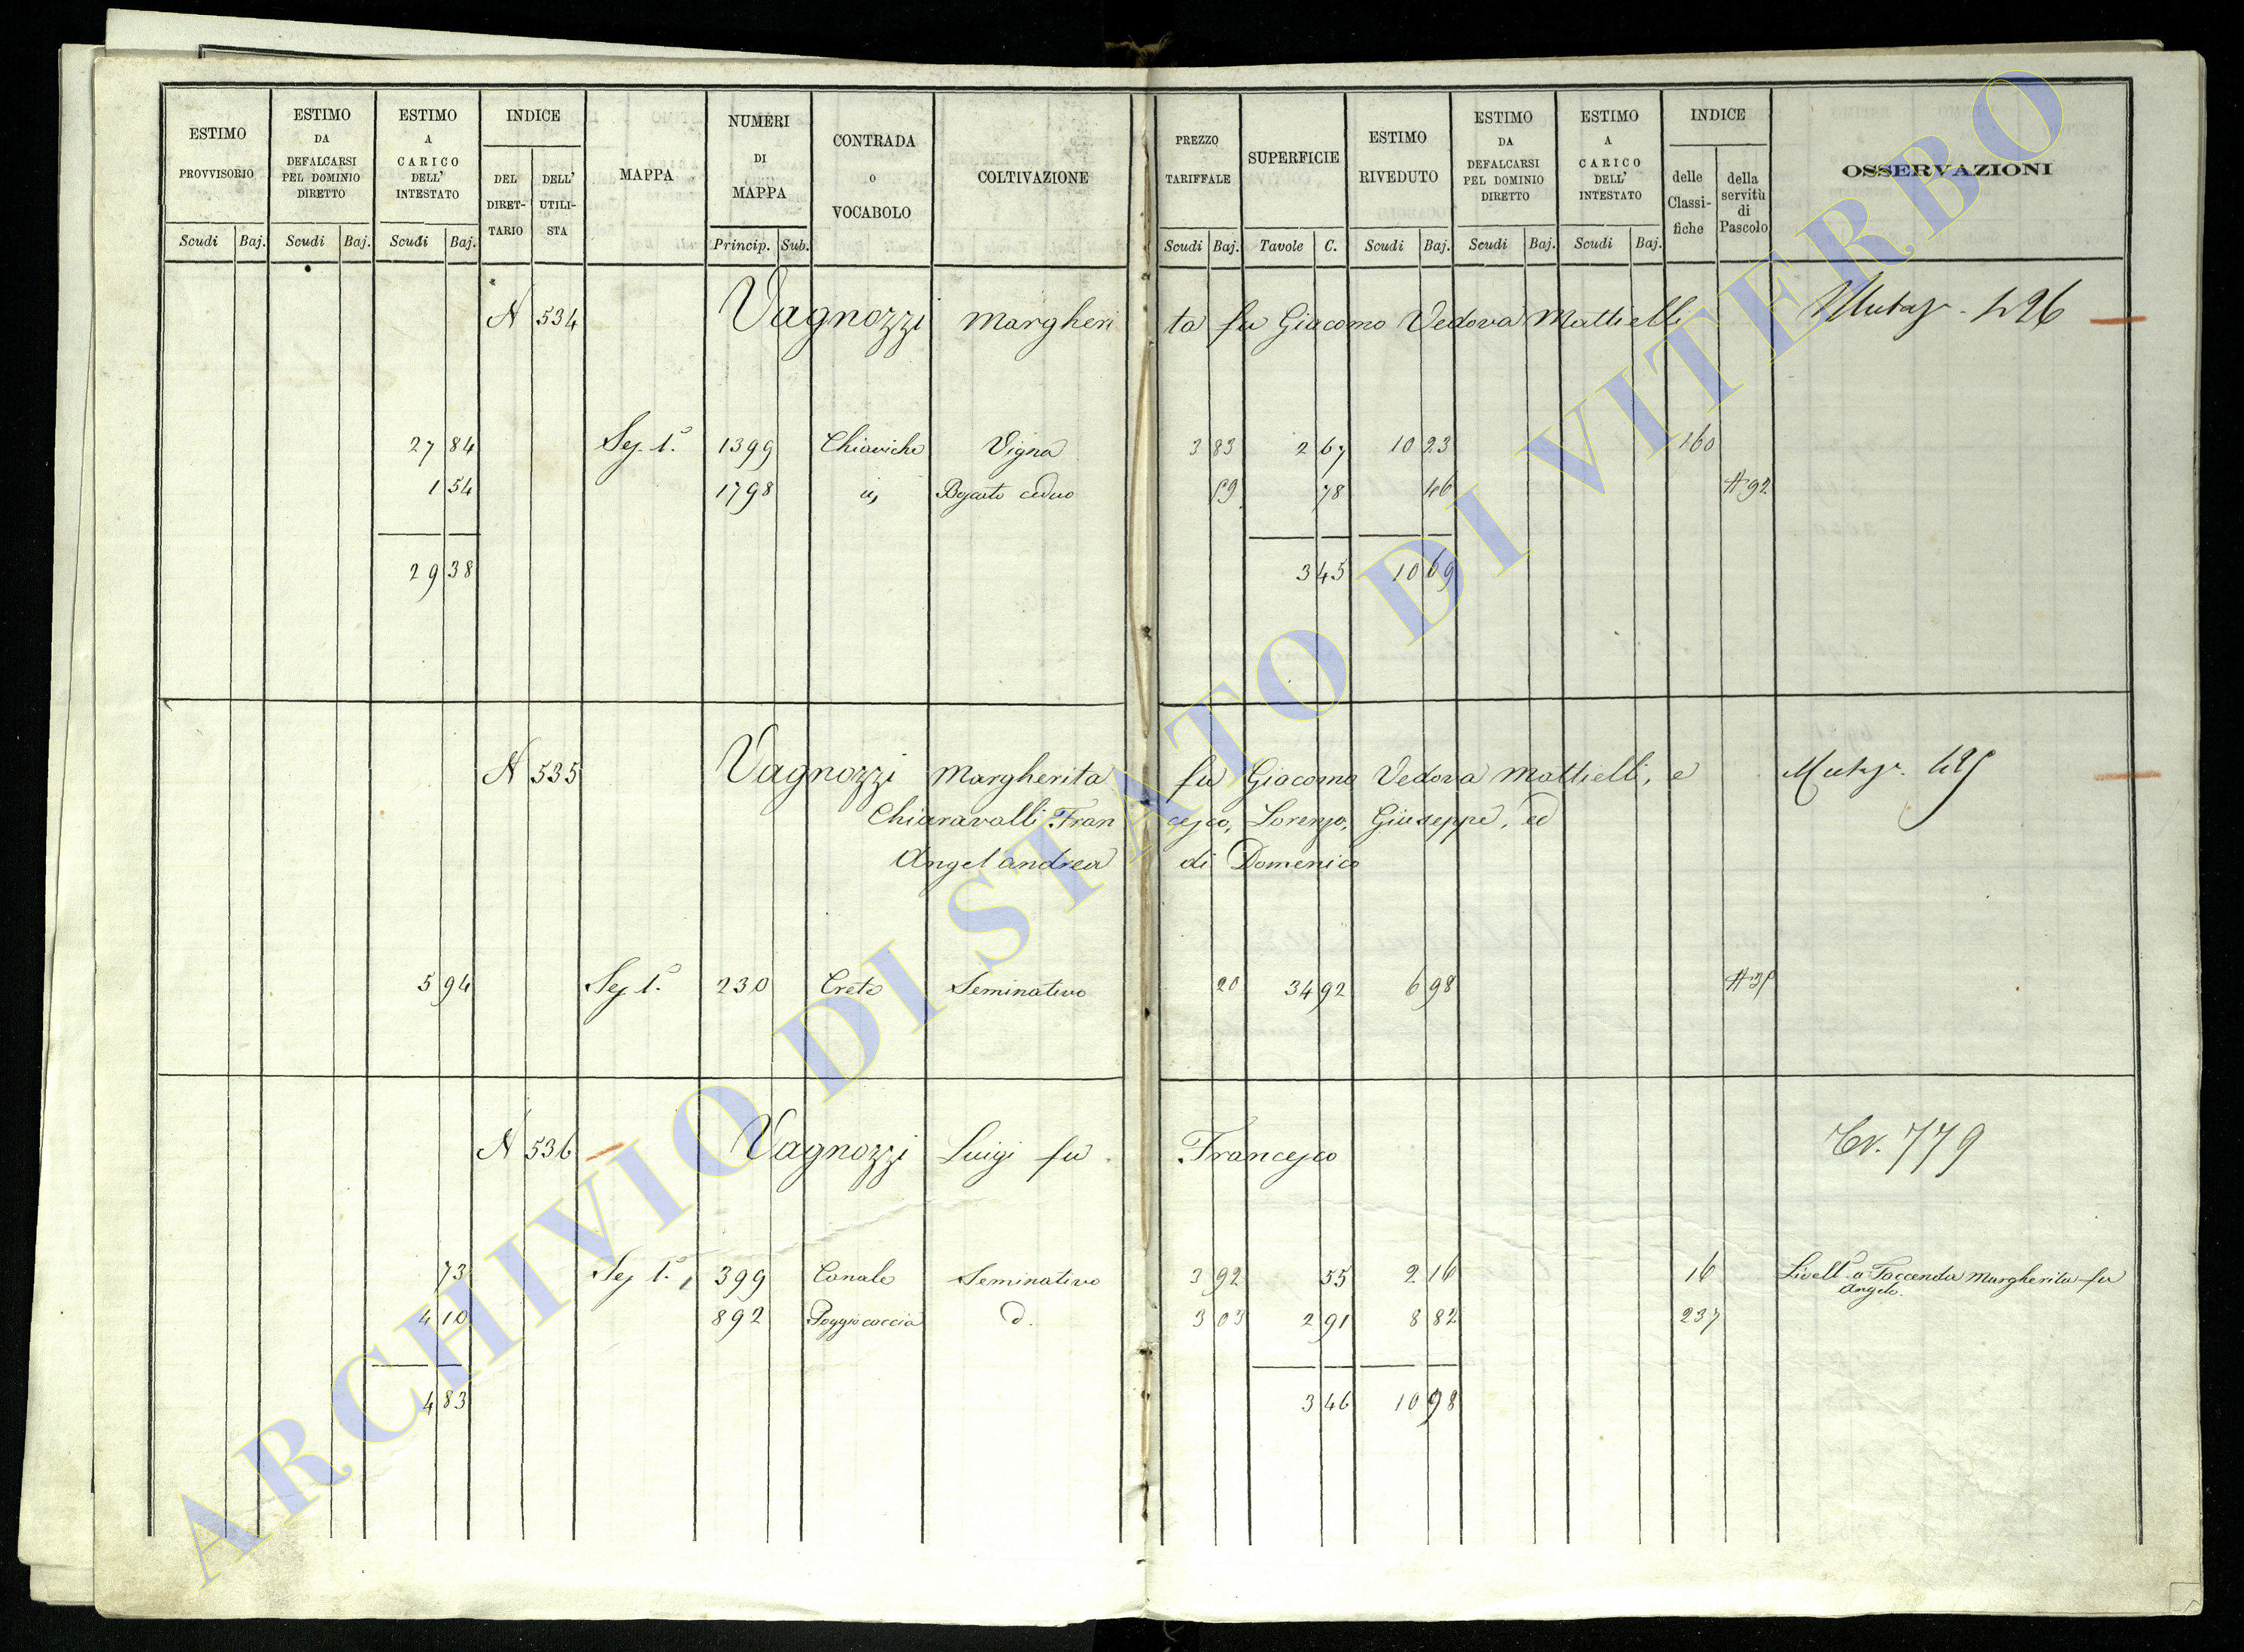 ESTIMO PROVVISORIO
ESTIMO DA DEFALCARSI PEL DOMINIO DIRETTO
ESTIMO A CARICO DELL' INTESTATO
INDICE
DEL DIRET-TARIO
DELL' UTILI-STA
MAPPA
NUMERI DI MAPPA
CONTRADA o VOCABOLO
COLTIVAZIONE
PREZZO TARIFFALE
SUPERFICIE
ESTIMO RIVEDUTO
ESTIMO DA DEFALCARSI PEL DOMINIO DIRETTO
ESTIMO A CARICO DELL' INTESTATO
INDICE
delle Classi-fiche
della servitù di Pascolo
OSSERVAZIONI
Scudi Baj. Scudi Baj. Scudi Baj. Princip. Sub. Scudi Baj. Tavole C. Scudi Baj. Scudi Baj. Scudi Baj.
N 534 Vagnozzi Margherita fu Giacomo Vedova Mattielli 426
27 84 Sez. 1ª 1399 Chiaviche Vigna 3 83 2 67 10 23 160
1 54 1798 Boscato ceduo 59 78 46 92
29 38 3 45 10 69
N 535 Vagnozzi Margherita fu Giacomo Vedova Mattielli, e
Chiaravalli Francesco, Lorenzo, Giuseppe, ed
Angel andrea di Domenico
5 94 Sez 1ª 230 Creta Seminativo 20 34 92 6 98
N 536 Vagnozzi Luigi fu Francesco 779
73 Sez 1ª 399 Canale Seminativo 3 92 55 2 16 16 Livellº a Faccenda Margherita fu Angelo.
4 10 892 Poggio caccia d. 3 03 2 91 8 82 237
4 83 3 46 10 98
ARCHIVIO DI STATO DI VITERBO